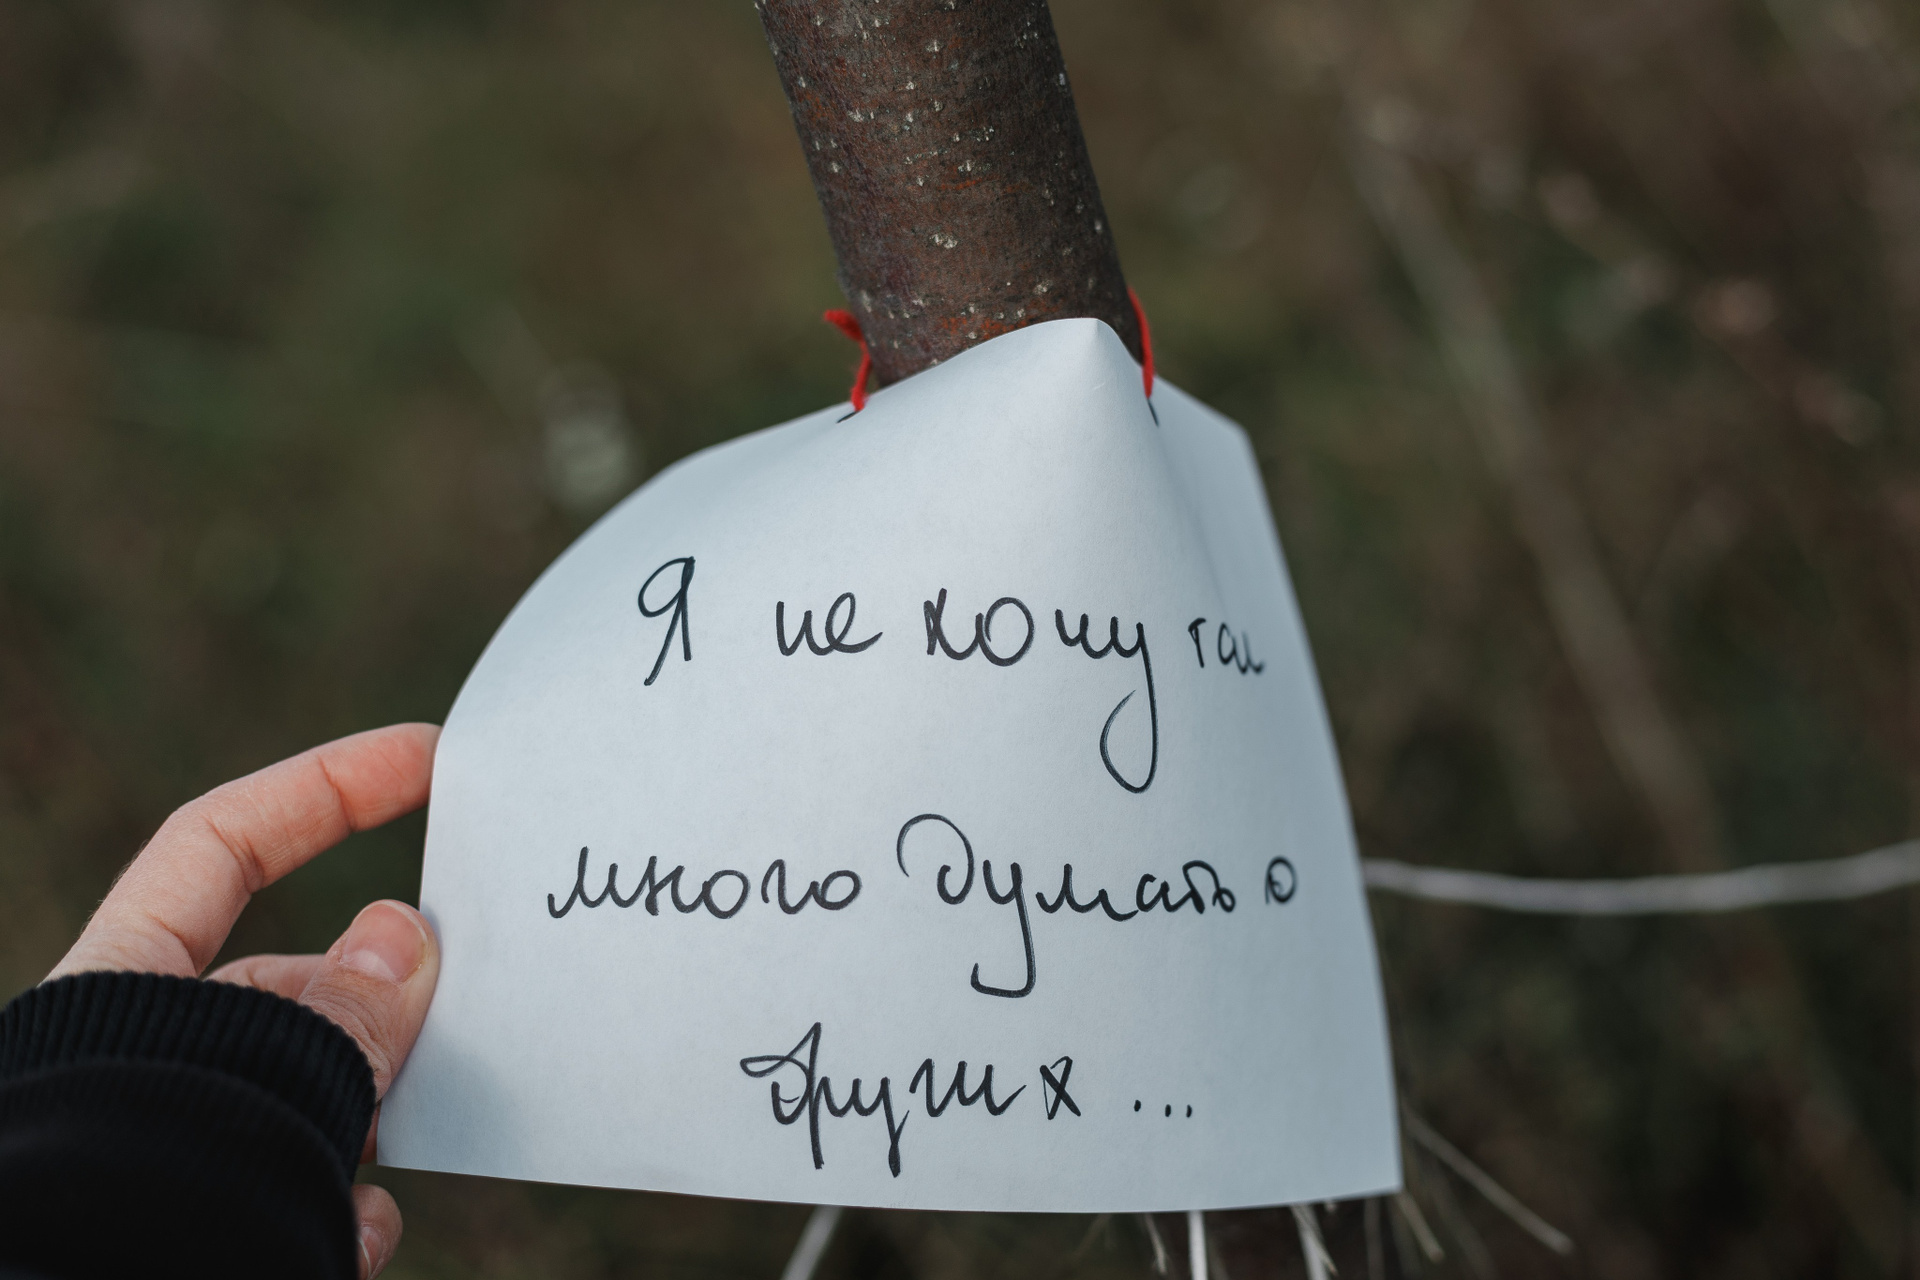 Я не хочу так
много думать о
других...